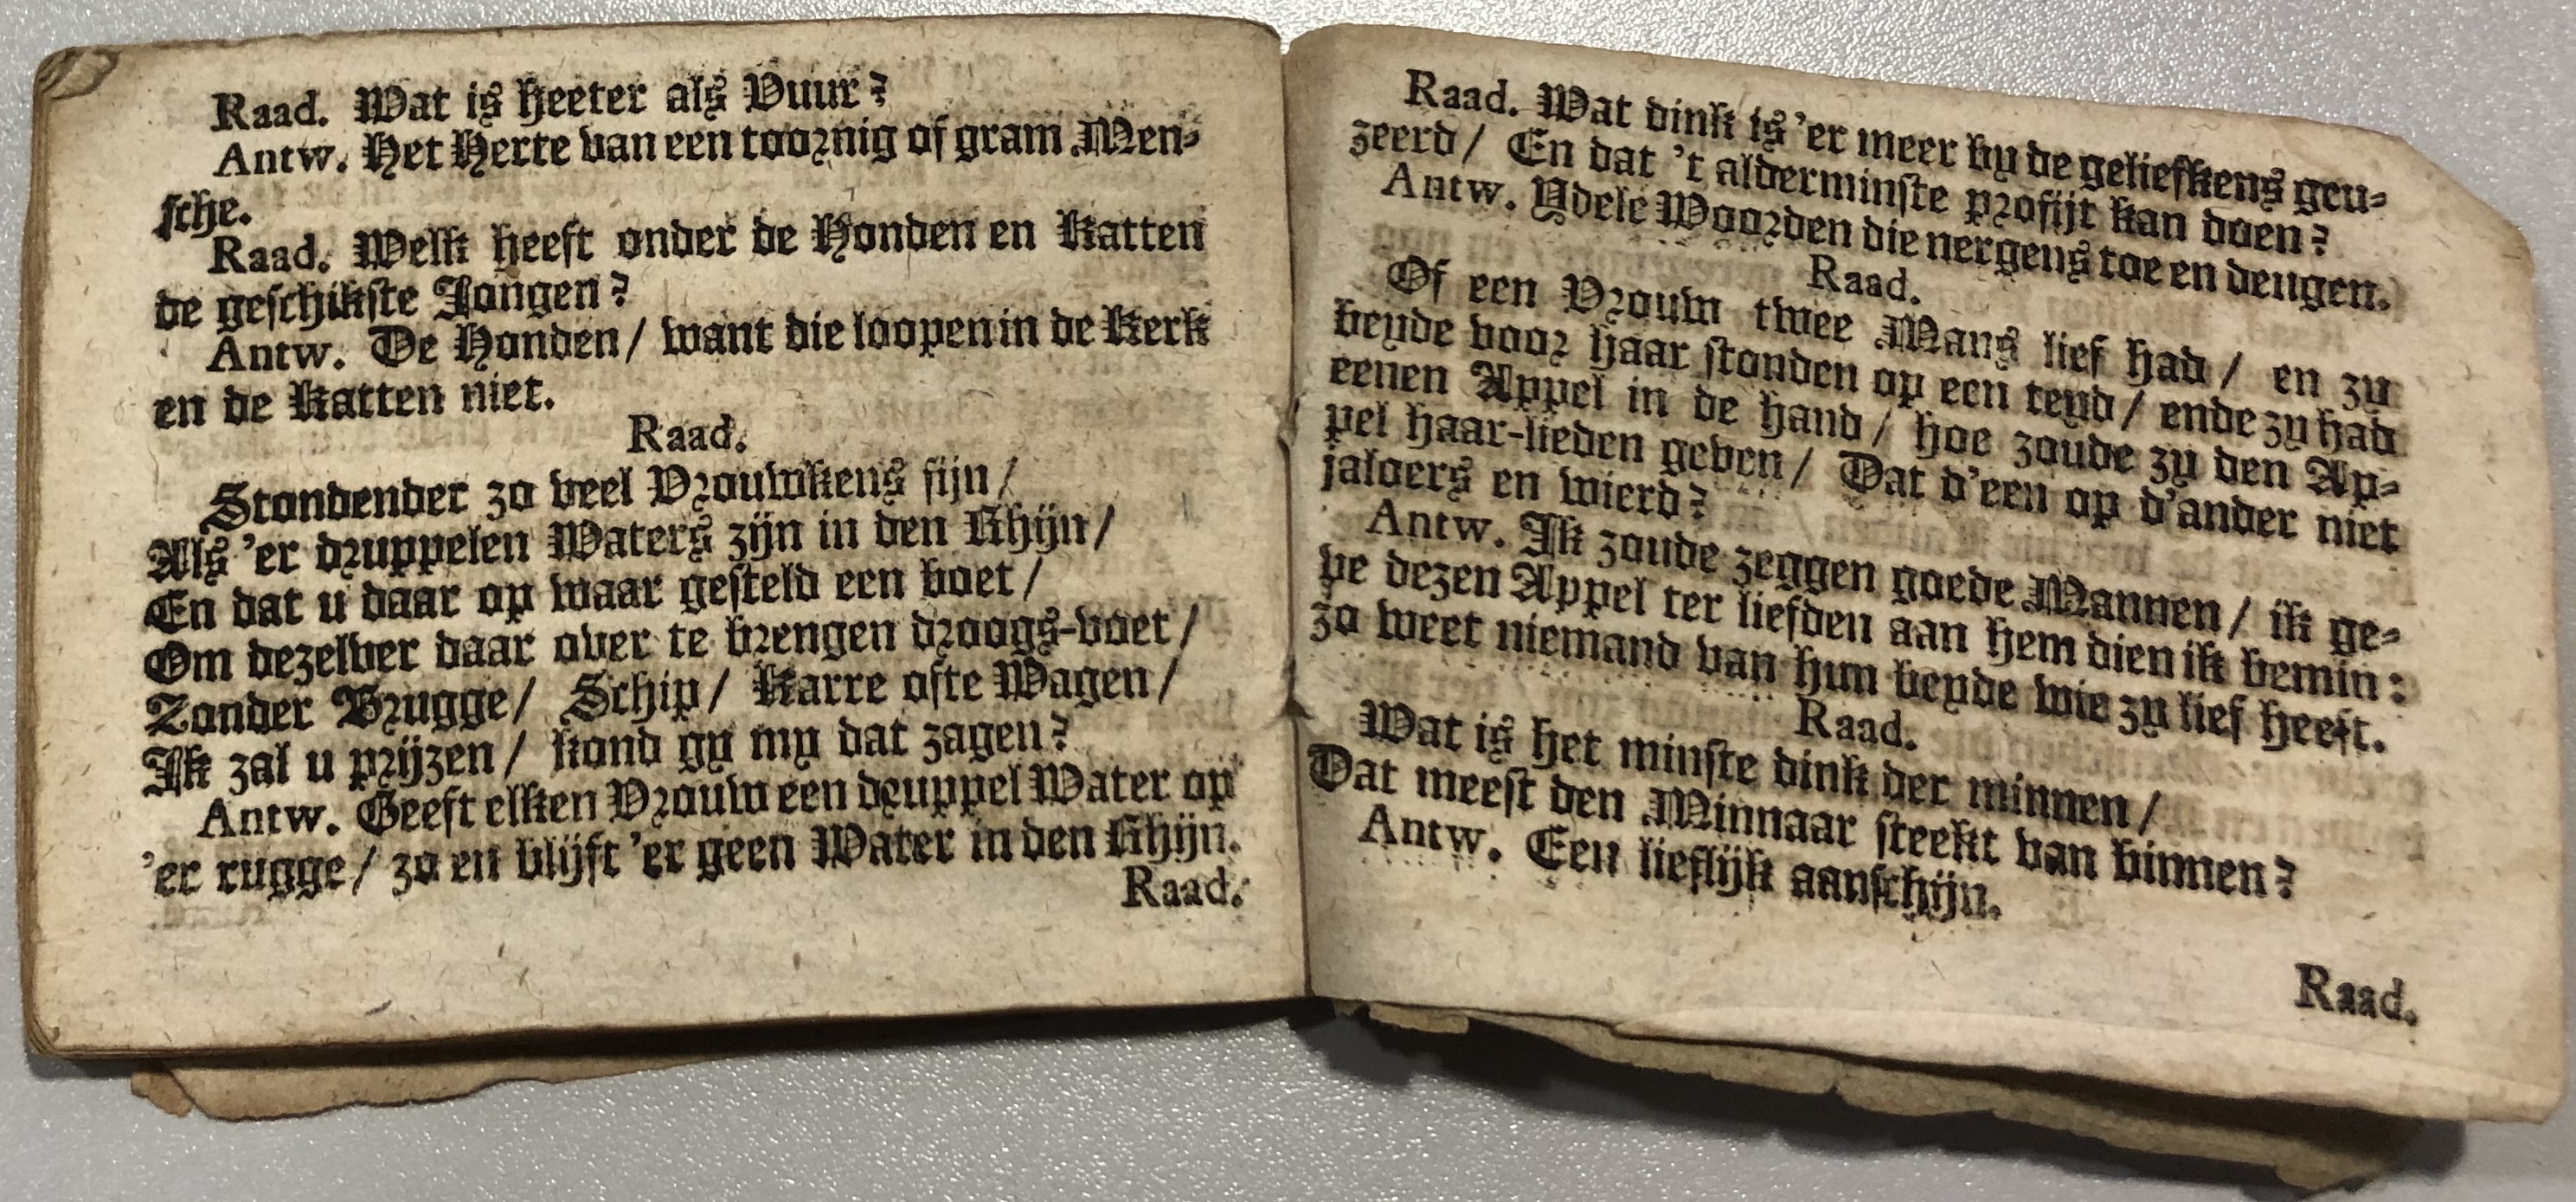 Raad. Wat is heeter als Vuur?
Antw. Het Herte van een toornig of gram Men-
sche.
Raad. Welk heeft onder de Honden en Katten
de geschikste Jongen?
Antw. De Honden/ want die loopen in de Kerk
en de Katten niet.
Raad.
Stondender zo veel Vrouwkens fijn/
Als 'er druppelen Waters zijn in den Rhijn/
En dat u daar op waar gesteld een boet/
Om dezelver daar over te brengen droogs-voet/
Zonder Brugge/ Schip/ Karre ofte Wagen/
Ik zal u prijzen/ kond gy my dat zagen?
Antw. Geeft elken Vrouw een druppel Water op
'er rugge/ zo en blijft 'er geen Water in den Rhijn.
Raad.
Raad. Wat dink is 'er meer by de geliefkens geu-
zeerd/ En dat 't alderminste profijt kan doen?
Antw. Ydele Woorden die nergens toe en deugen.
Raad.
Of een Vrouw twee Mans lief had/ en zy
beyde voor haar stonden op een teyd/ ende zy had
eenen Appel in de hand/ hoe zoude zy den Ap-
pel haar-lieden geven/ Dat d'een op d'ander niet
jaloers en wierd?
Antw. Ik zoude zeggen goede Mannen/ ik ge-
ve dezen Appel ter liefden aan hem dien ik bemin:
zo weet niemand van hun beyde wie zy lief heeft.
Raad.
Wat is het minste dink der minnen/
Dat meest den Minnaar steekt van binnen?
Antw. Een lieflijk aanschijn.
Raad.